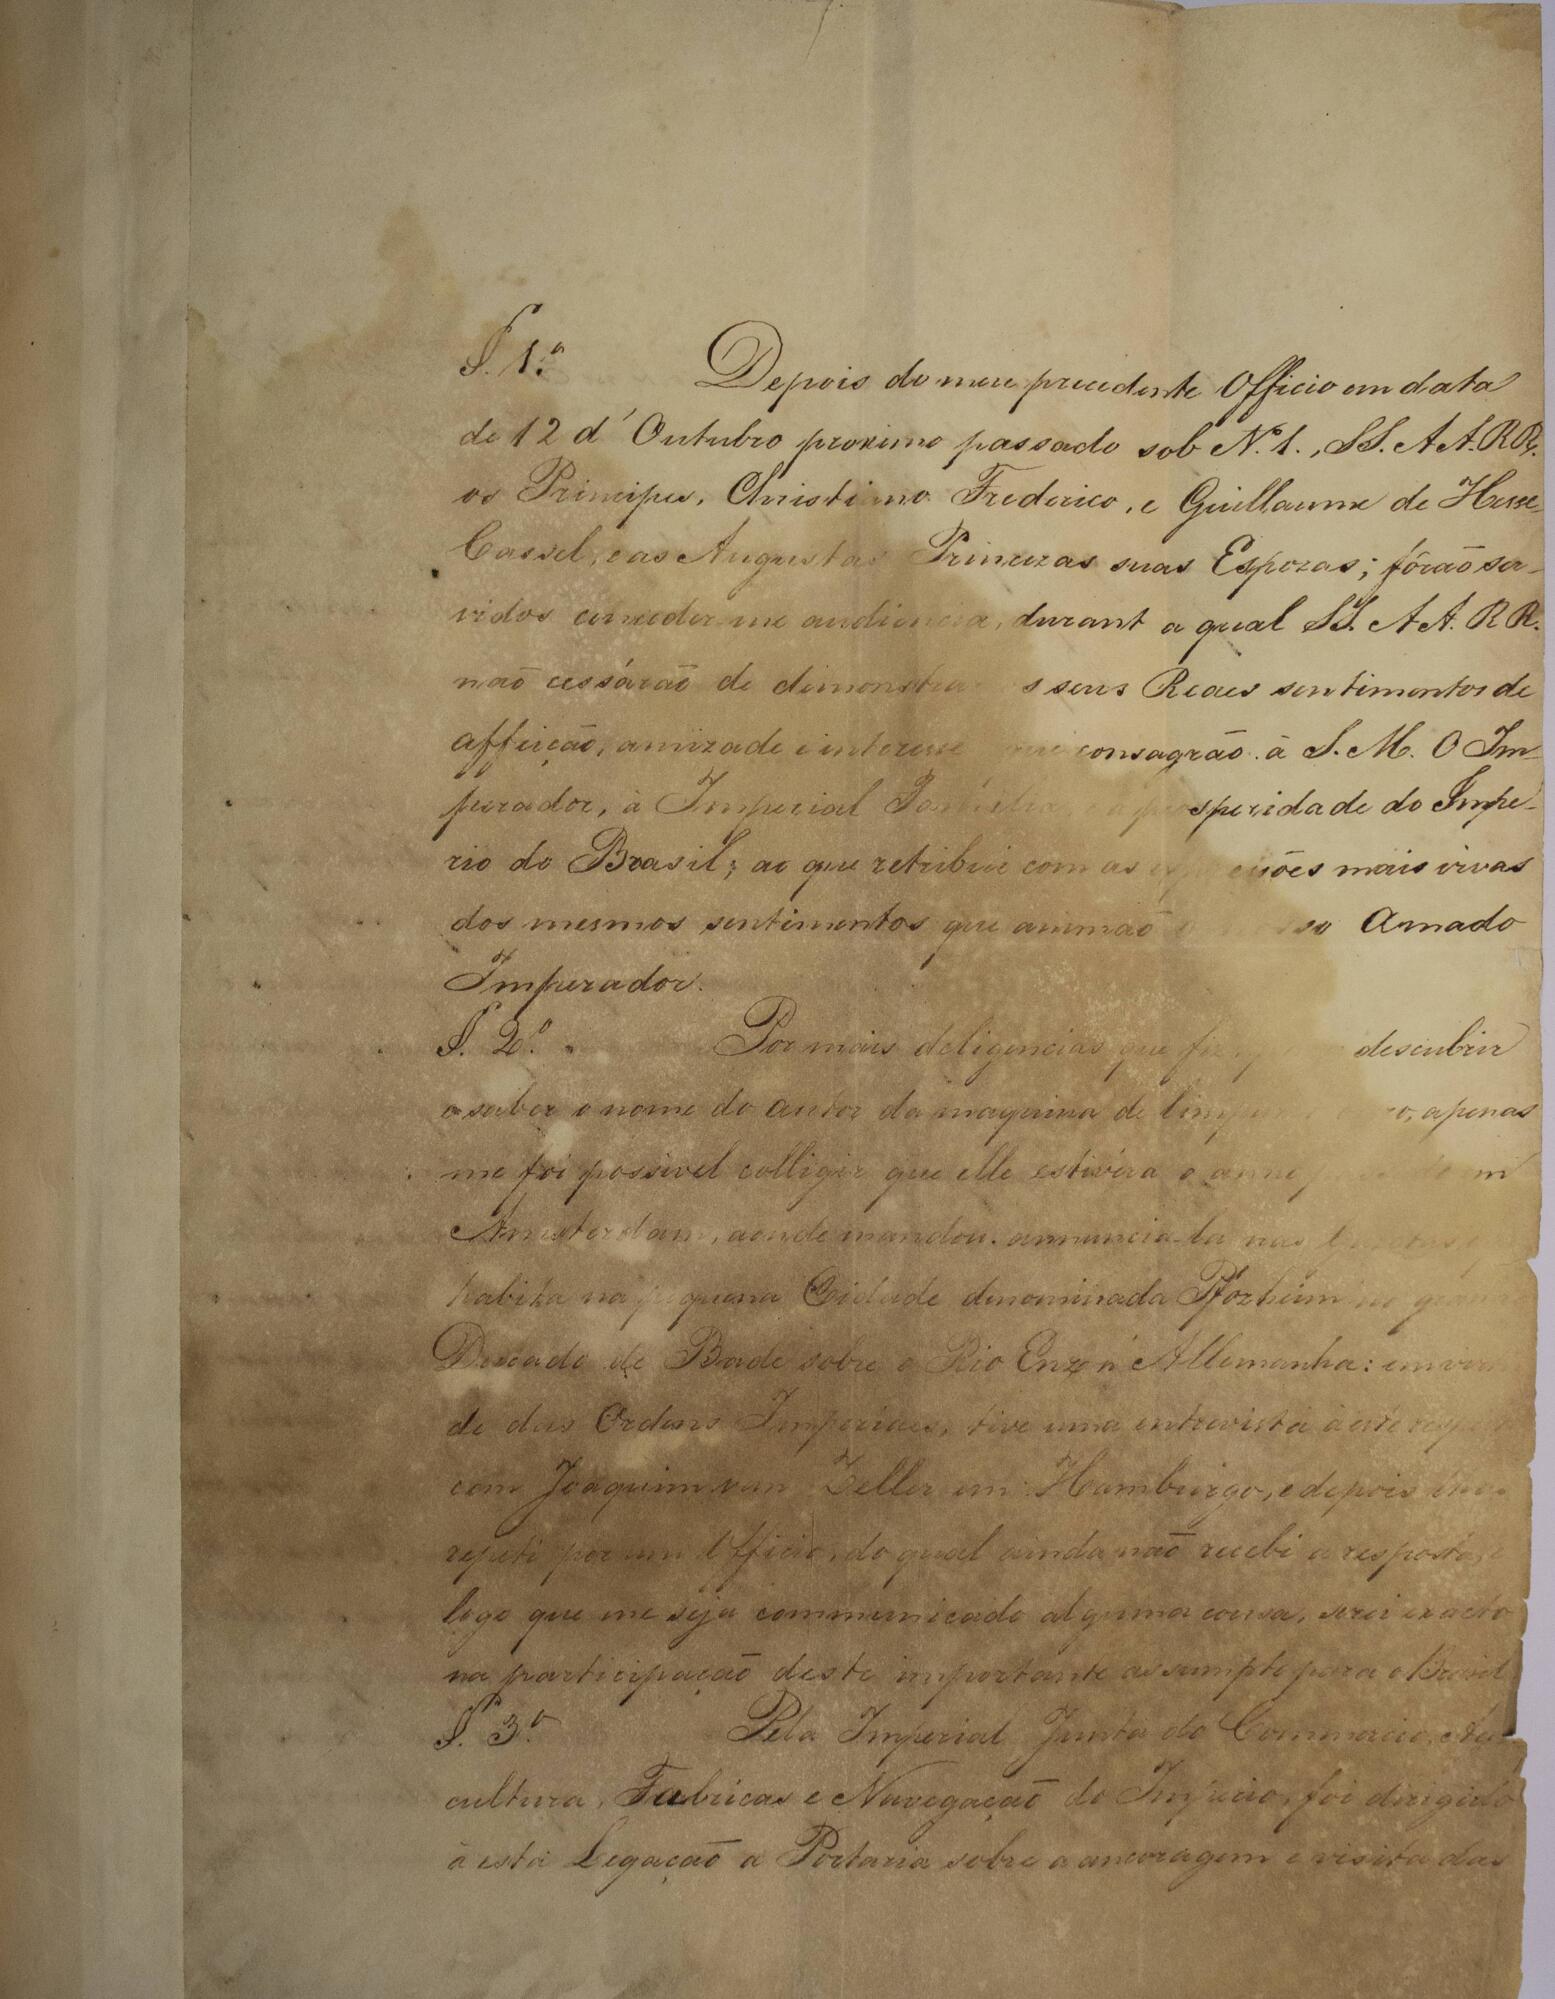 §. 1.º Depois do meu precedente Officio em data
de 12 d'Outubro proximo passado sob N.º 1., SS. A A. R R.
os Principes, Christiano Frederico, e Guillaume de Hesse-
Cassel, e as Augustas Princezas suas Espozas; fôrão ser-
vidos conceder me audiencia, durant a qual SS. A A. R R.
não cessárão de demonstrar os seus Reaes sentimentos de
affeição, amizade e interesse que consagrão à S. M. O Im-
perador, à Imperial Familia, e à prosperidade do Impe-
rio do Brasil; ao que retribui com as expressões mais vivas
dos mesmos sentimentos que animão o nosso Amado
Imperador.
§. 2.º Por mais deligencias que fiz descubrir
o nome do autor da maquina de apenas
me foi possivel colligir que elle estivéra o anno em
Amsterdam, aonde mandou annuncia-la nas
habita na pequena Cidade denominada Pforzheim no
Ducado de Bade sobre o Rio Enz n'Allemanha: em
de das Ordens Imperiaes, tive uma entrevista à este
com Joaquim van Zeller em Hamburgo, e depois
repeti por um Officio, do qual ainda não recebi a resposta, e
logo que me seja communicado alguma cousa, serei exacto
na participação deste importante assumpto para o Brasil
§. 3.º Pela Imperial Junta do Commercio,
cultura, Fabricas e Navegação do Imperio, foi dirigido
à esta Legação a Portaria sobre a ancoragem e visita das